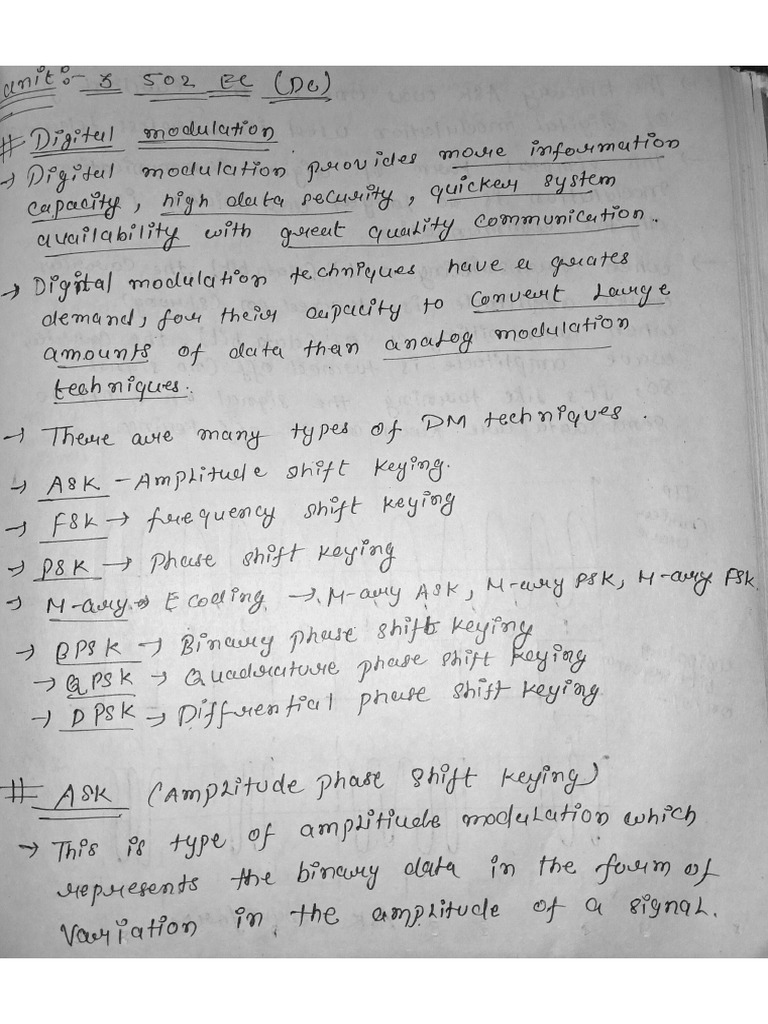 unit:- 3 502 EC (DC)
# Digital modulation
→ Digital modulation provides more information
capacity, high data security, quicker system
availability with great quality communication.
→ Digital modulation techniques have a greates
demand, for their capacity to convert large
amounts of data than analog modulation
techniques.
→ There are many types of DM techniques.
→ ASK - Amplitude shift keying.
→ FSK → frequency shift keying
→ PSK → Phase shift keying
→ M-ary Ecoding → M-ary ASK, M-ary PSK, M-ary FSK
→ BPSK → Binary phase shift keying
→ QPSK → Quadrature phase shift keying
→ DPSK → Diffrential phase shift keying
# ASK (Amplitude phase shift keying)
→ This is type of amplitiude modulation which
represents the binary data in the form of
variation in the amplitude of a signal.